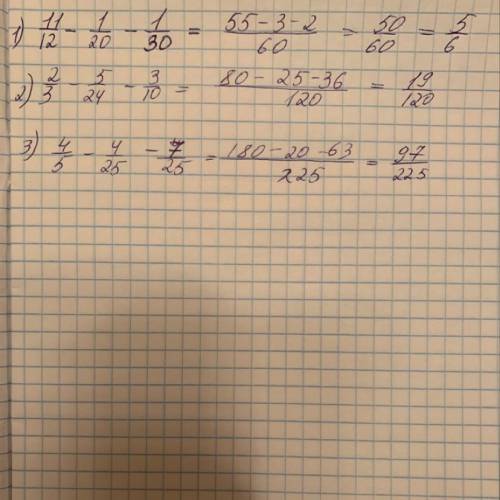 1) 11/12 - 1/20 - 1/30 = (55 - 3 - 2)/60 = 50/60 = 5/6
2) 2/3 - 5/24 - 3/10 = (80 - 25 - 36)/120 = 19/120
3) 4/5 - 4/25 - 7/25 = (180 - 20 - 63)/225 = 97/225